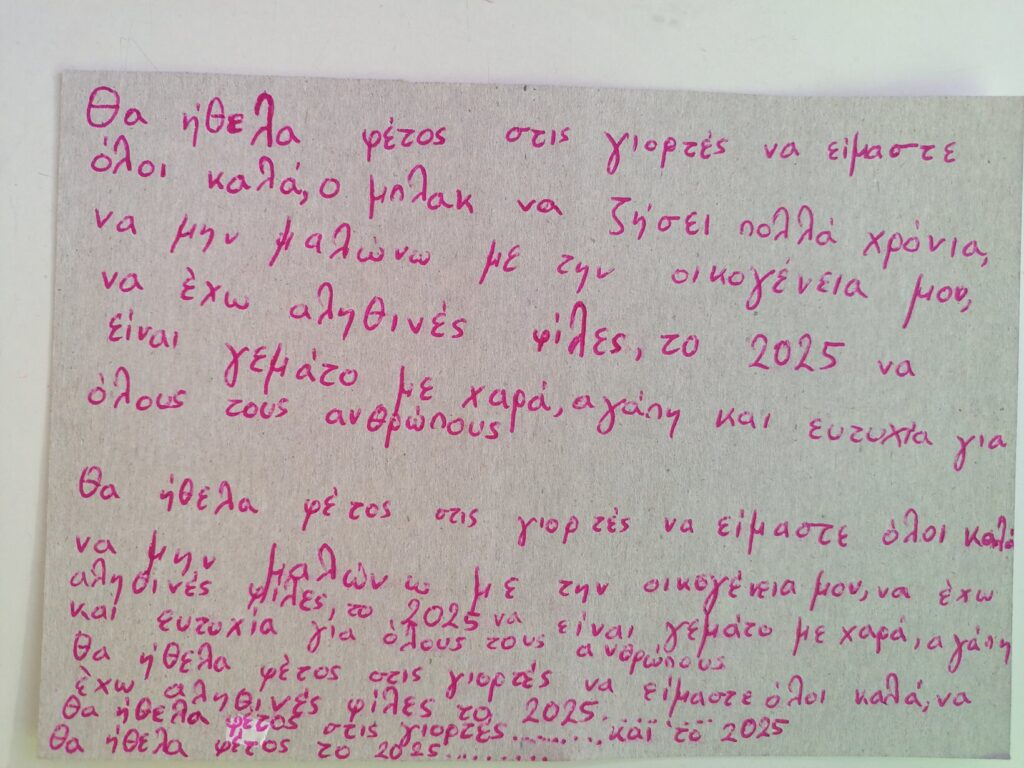 Θα ήθελα φέτος στις γιορτές να είμαστε
όλοι καλά, ο μπλακ να ζήσει πολλά χρόνια,
να μην μαλώνω με την οικογένεια μου,
να έχω αληθινές φίλες, το 2025 να
είναι γεμάτο με χαρά, αγάπη και ευτυχία για
όλους τους ανθρώπους
Θα ήθελα φέτος στις γιορτές να είμαστε όλοι καλά
να μην μαλώνω με την οικογένεια μου, να έχω
αληθινές φίλες, το 2025 να είναι γεμάτο με χαρά, αγάπη
και ευτυχία για όλους τους ανθρώπους
Θα ήθελα φέτος στις γιορτές να είμαστε όλοι καλά, να
έχω αληθινές φίλες το 2025.
Θα ήθελα φέτος στις γιορτές......... και το 2025
Θα ήθελα φέτος το 2025..........